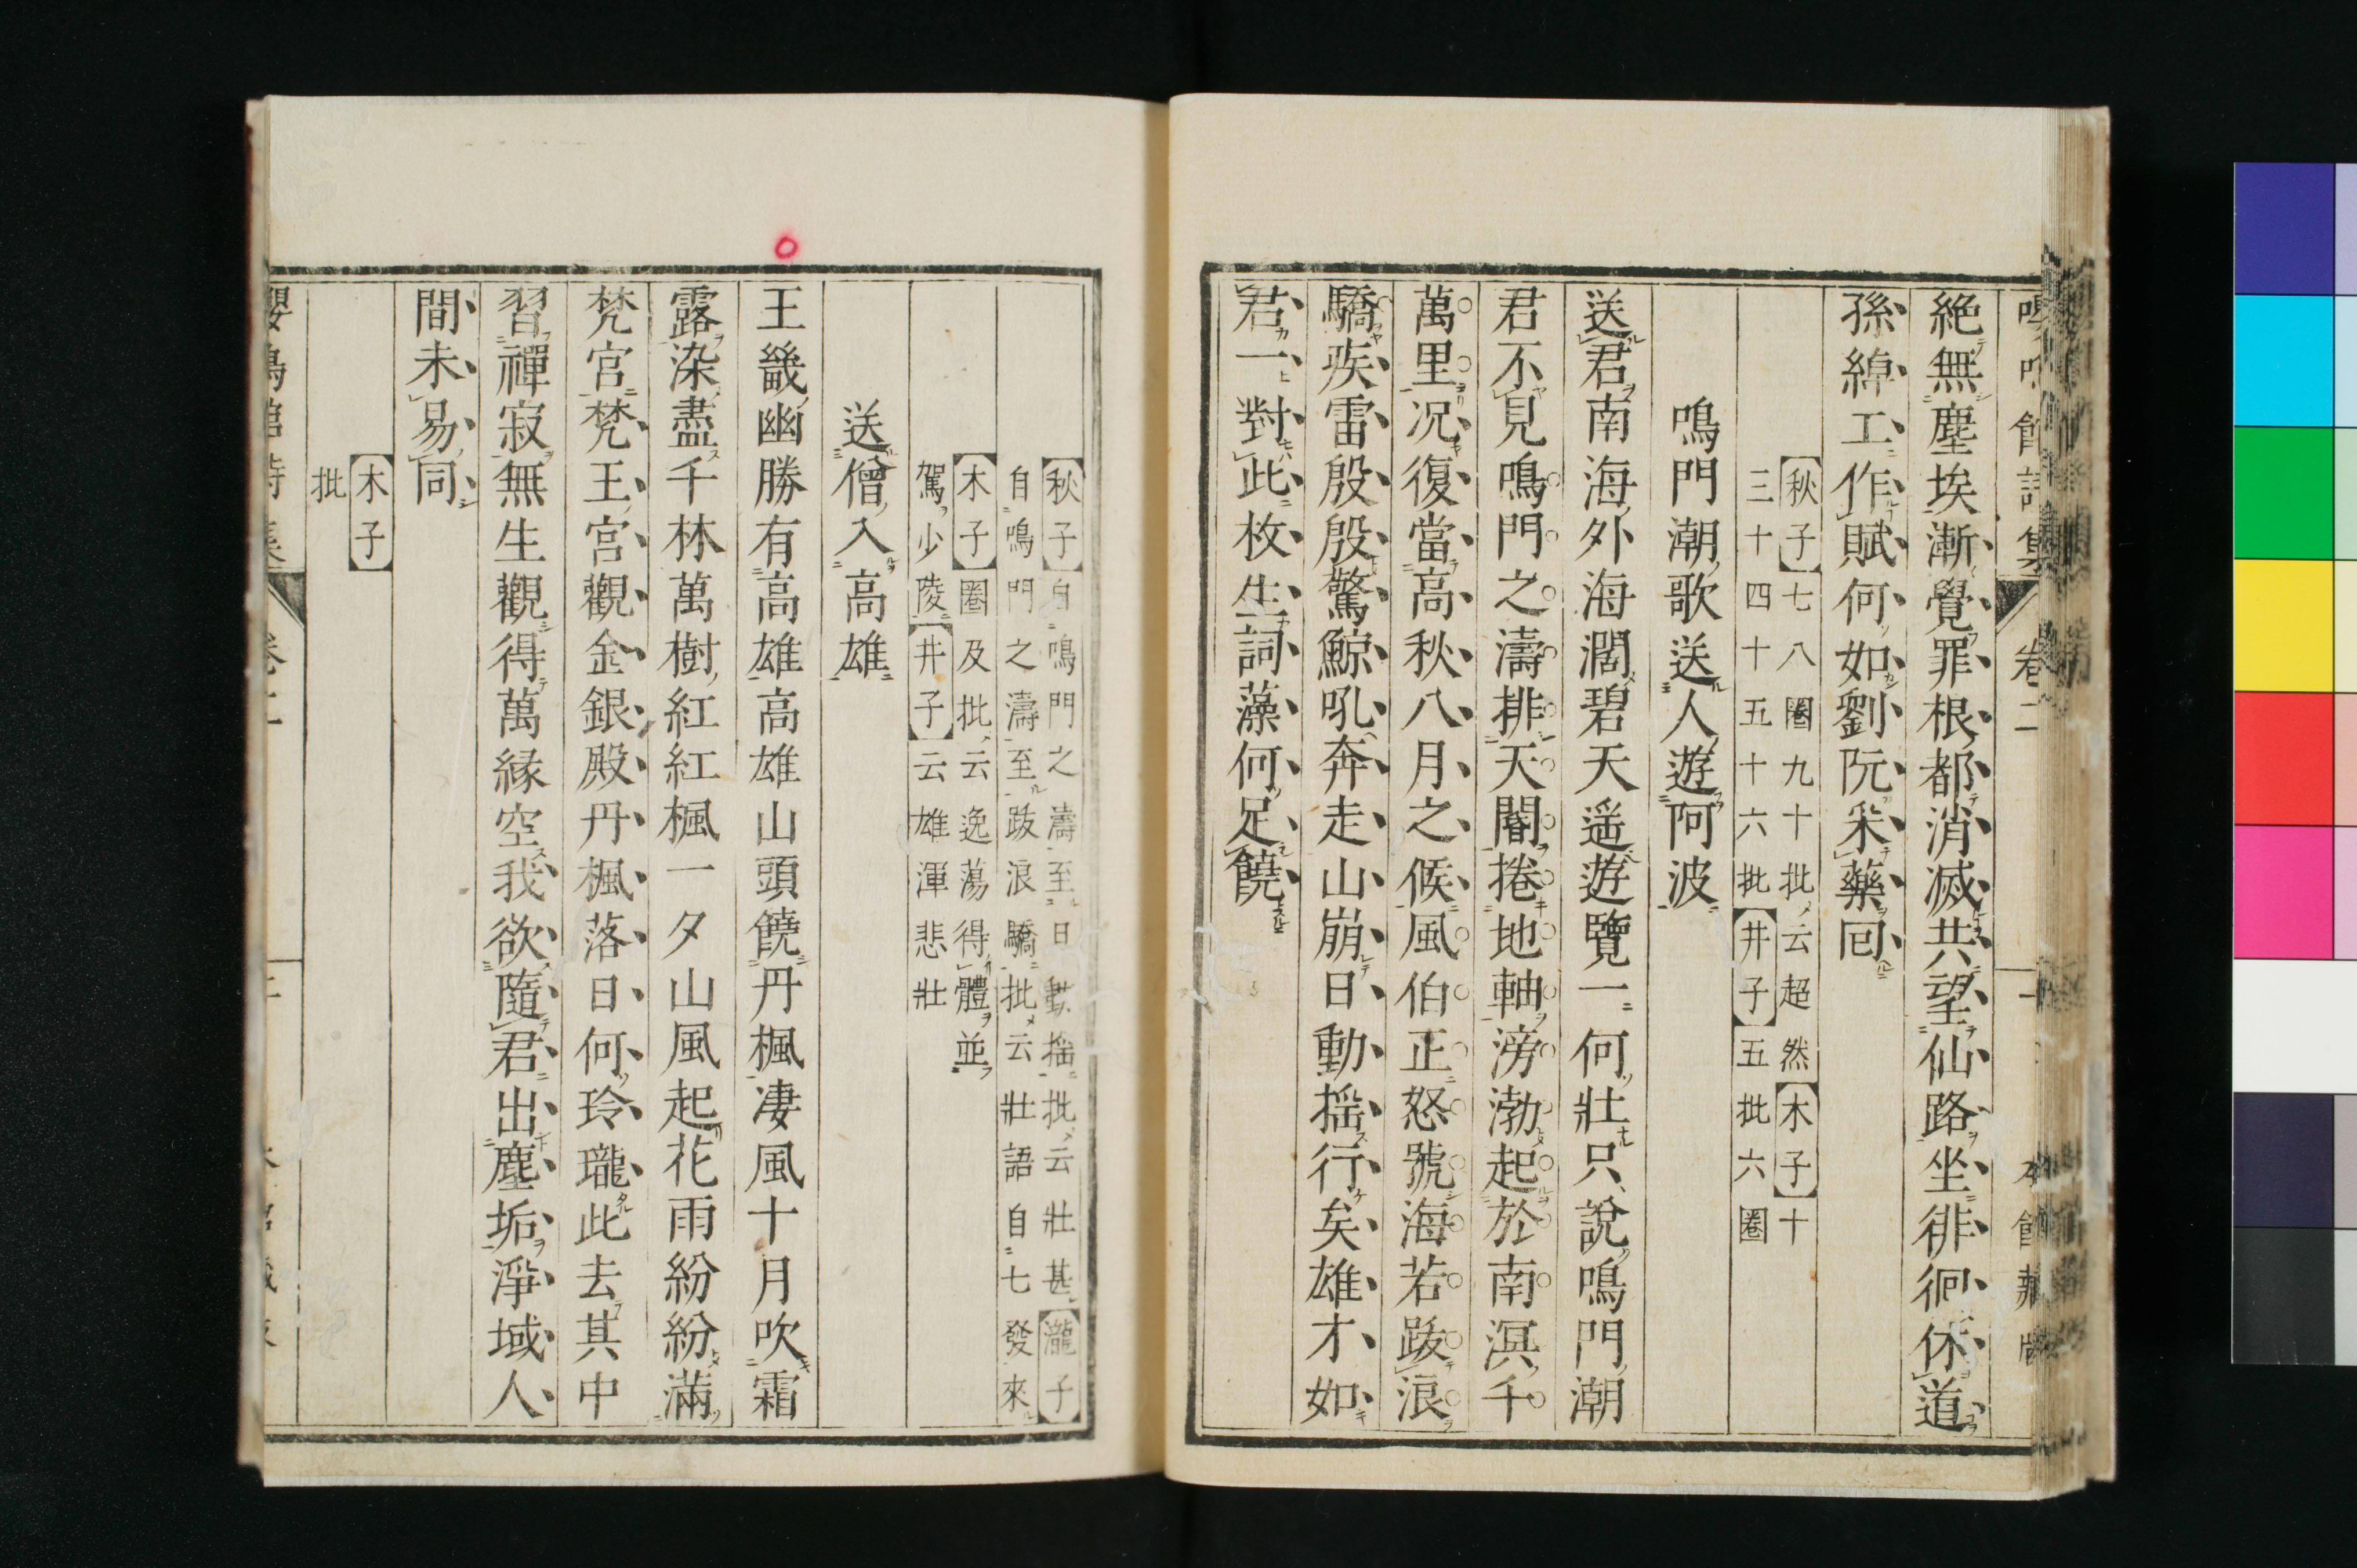 絶無塵埃漸覺罪根都消滅共望仙路坐徘徊休道
孫綽工作賦何如劉阮采藥回
秋子七八圈九十批云超然木子十
三十四十五十六批井子五批六圈
鳴門潮歌送人遊阿波
送君南海外海濶碧天遥遊覽一何壯只說鳴門潮
君不見鳴門之濤排天閽捲地軸滂渤起於南溟千
萬里况復當高秋八月之候風伯正怒號海若跋浪
驕疾雷殷殷驚鯨吼奔走山崩日動揺行矣雄才如
君一對此枚生詞藻何足饒
秋子自鳴門之濤至日動揺批云壯甚瀧子
自鳴門之濤至跋浪驕批云壯語自七發來
木子圈及批云逸蕩得體並
駕少陵井子云雄渾悲壯
送僧入高雄
王畿幽勝有高雄高雄山頭饒丹楓凄風十月吹霜
露染盡千林萬樹紅紅楓一夕山風起花雨紛紛滿
梵宮梵王宮觀金銀殿丹楓落日何玲瓏此去其中
習禪寂無生觀得萬縁空我欲隨君出塵垢淨域人
間未易同
木子
批